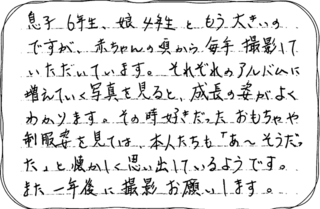 息子6年生、娘4年生ともう大きいの
ですが、赤ちゃんの頃から毎年撮影して
いただいています。それぞれのアルバムに
増えていく写真を見ると、成長の姿がよく
わかります。その時好きだったおもちゃや
制服姿を見ては、本人たちも「あ〜そうだっ
た」と懐かしく思い出しているようです。
また一年後に撮影お願いします。